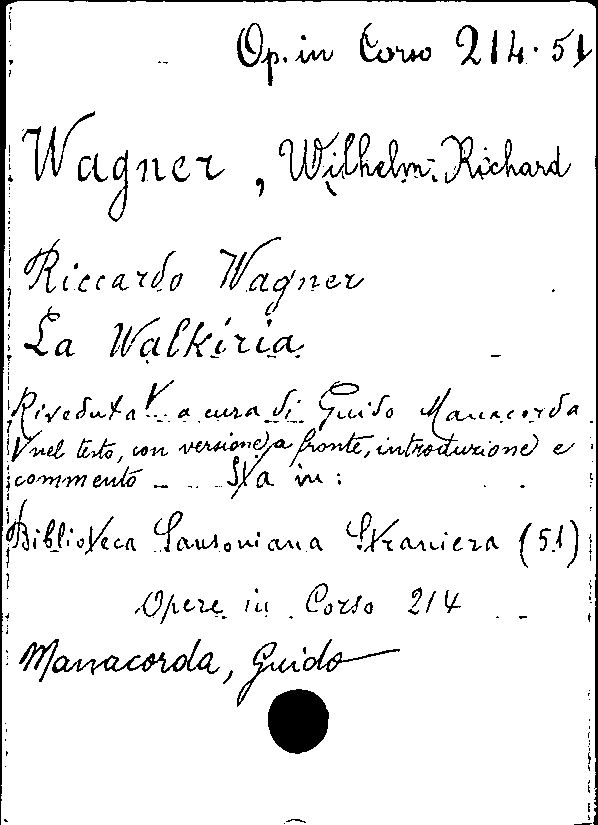 Op. in Corso 214. 51
Wagner, Wilhelm-Richard
Riccardo Wagner
La Walkiria
Riveduta V a cura di Guido Manacorda
V nel testo, con versione a fronte, introduzione e
commento Sta in:
Biblioteca Sansoniana Straniera (51)
Opere in Corso 214
Manacorda, Guido